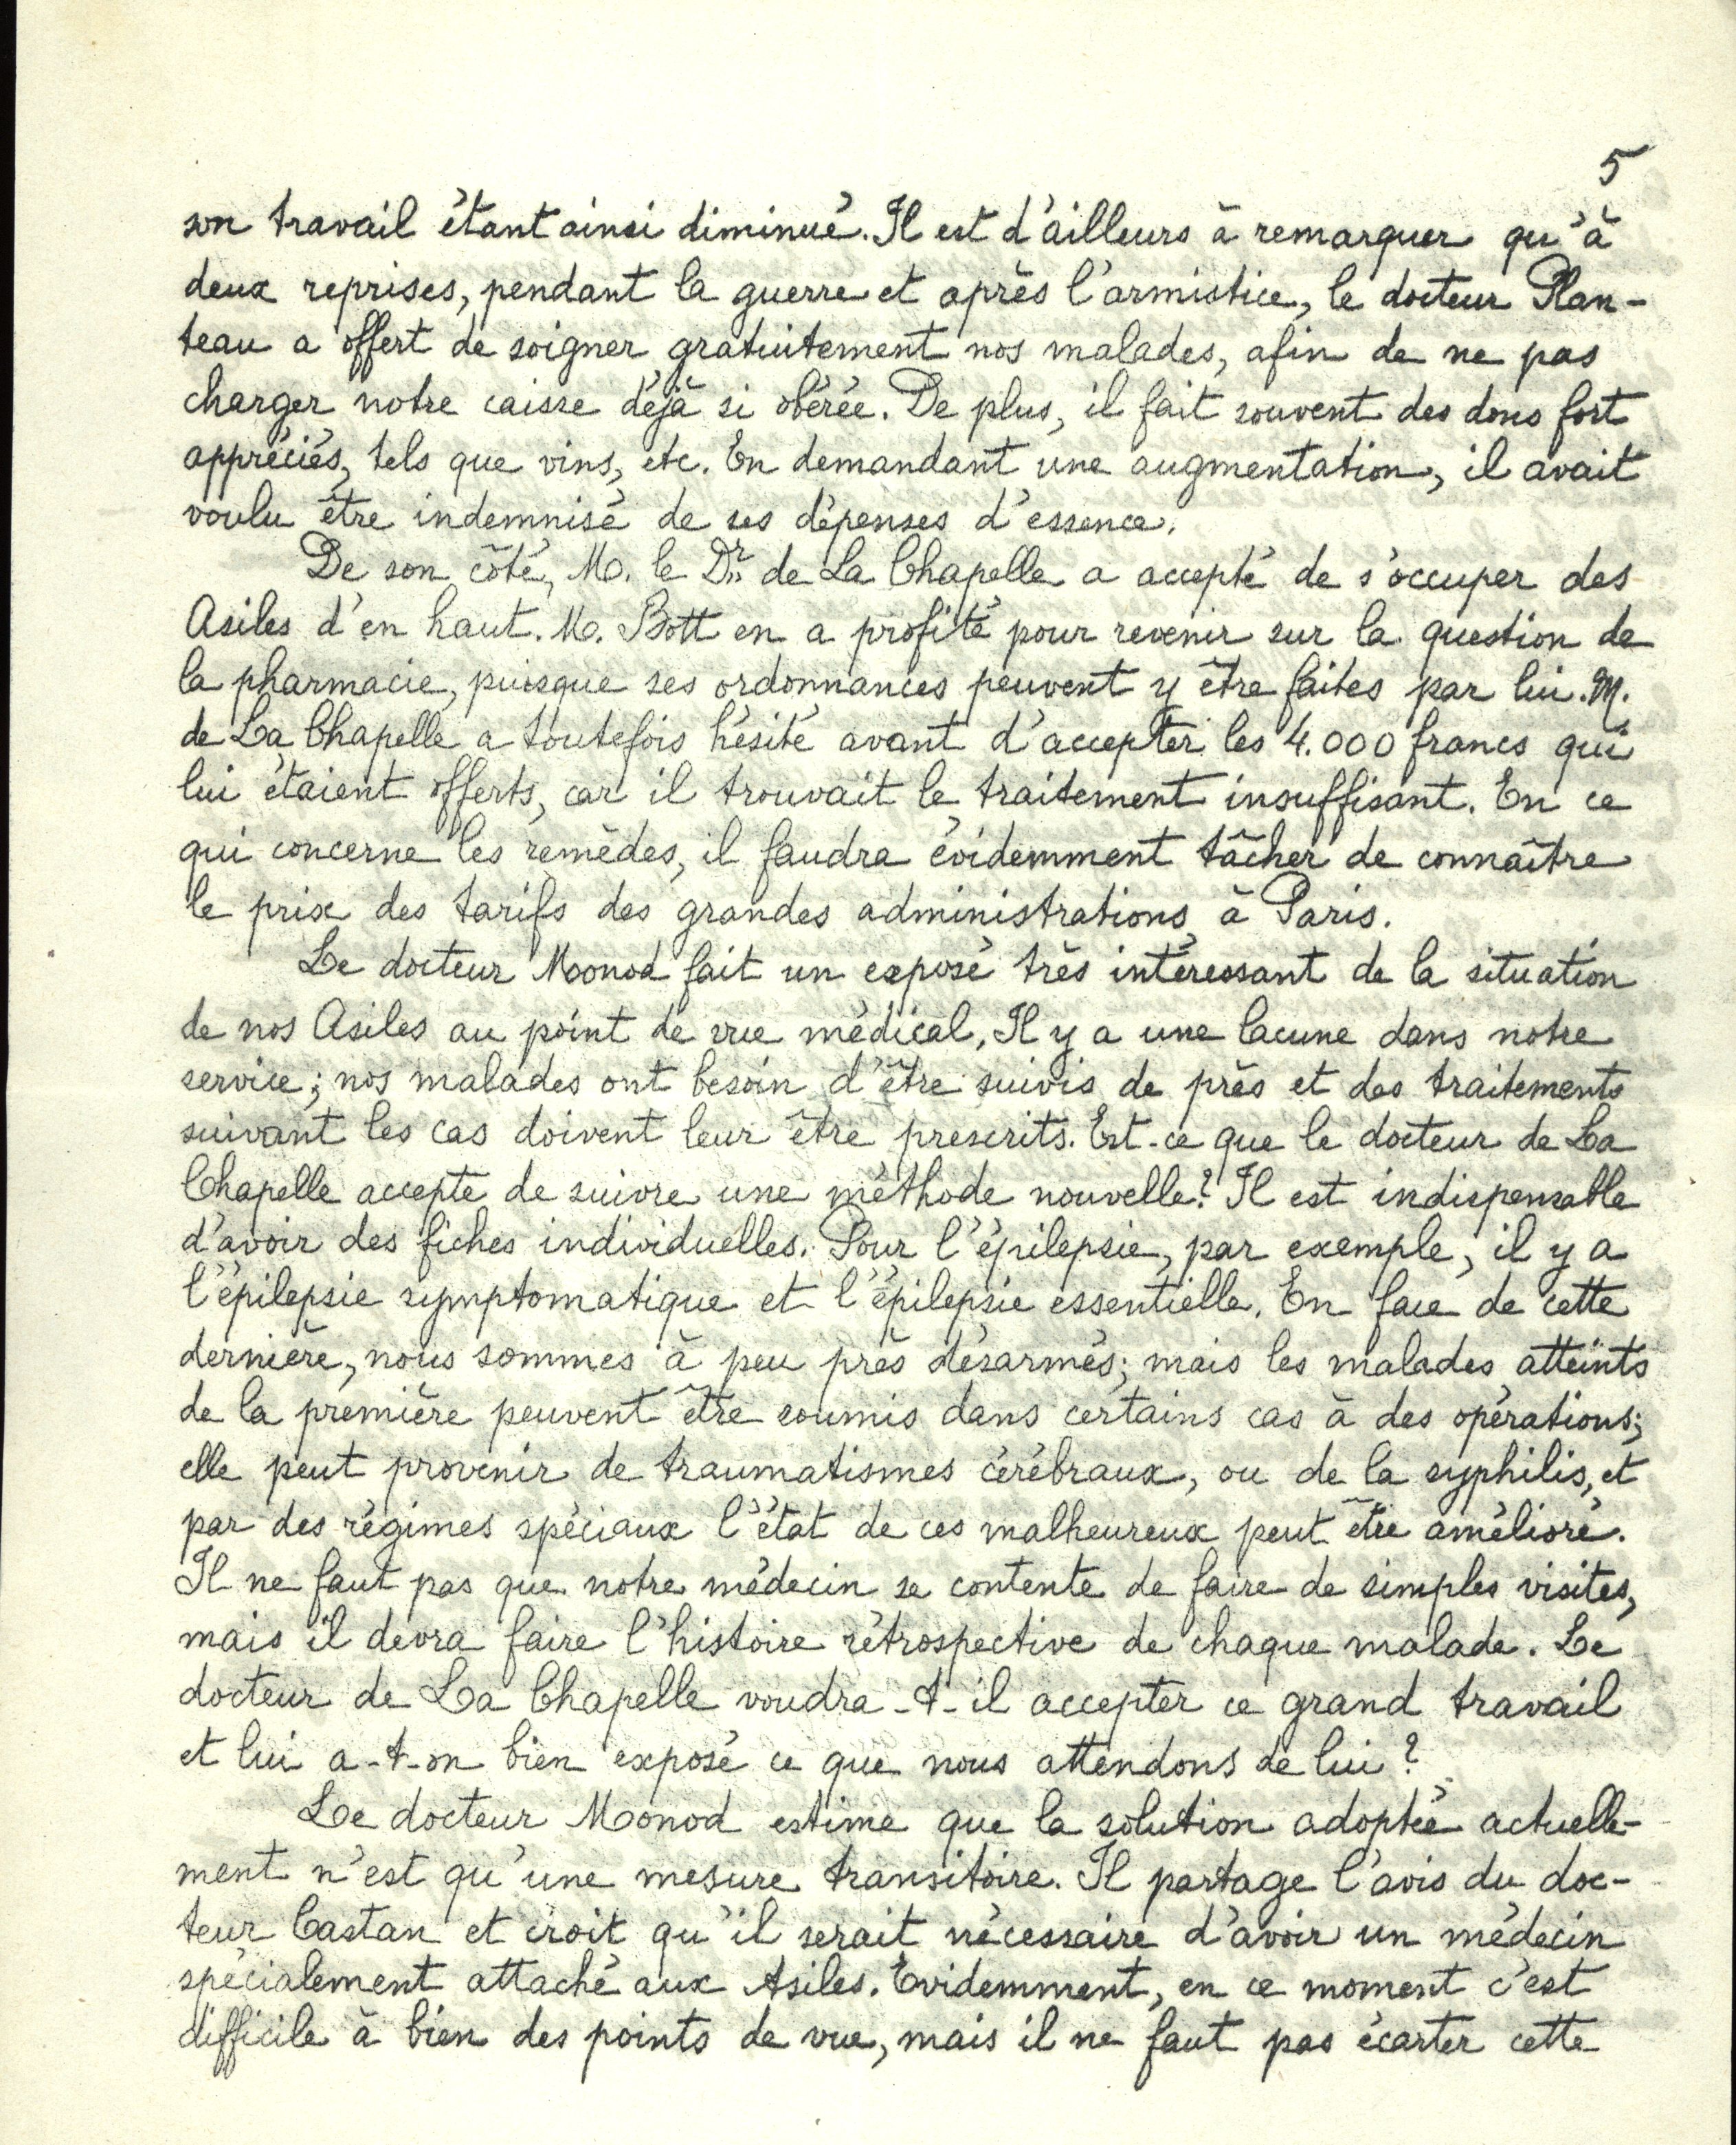 5
son travail étant ainsi diminué. Il est d'ailleurs à remarquer qu'à
deux reprises, pendant la guerre et après l'armistice, le docteur Plan-
teau a offert de soigner gratuitement nos malades, afin de ne pas
charger notre caisse déjà si obérée. De plus, il fait souvent des dons fort
appréciés, tels que vins, etc. En demandant une augmentation, il avait
voulu être indemnisé de ses dépenses d'essence.
De son côté, M. le Dr de La Chapelle a accepté de s'occuper des
Asiles d'en haut. M. Bott en a profité pour revenir sur la question de
la pharmacie, puisque ses ordonnances peuvent y être faites par lui. M.
de La Chapelle a toutefois hésité avant d'accepter les 4.000 francs qui
lui étaient offerts, car il trouvait le traitement insuffisant. En ce
qui concerne les remèdes, il faudra évidemment tâcher de connaître
le prix des tarifs des grandes administrations à Paris.
Le docteur Monod fait un exposé très intéressant de la situation
de nos Asiles au point de vue médical. Il y a une lacune dans notre
service; nos malades ont besoin d'être suivis de près et des traitements
suivant les cas doivent leur être prescrits. Est-ce que le docteur de La
Chapelle accepte de suivre une méthode nouvelle? Il est indispensable
d'avoir des fiches individuelles. Pour l'épilepsie, par exemple, il y a
l'épilepsie symptomatique et l'épilepsie essentielle. En face de cette
dernière, nous sommes à peu près désarmés; mais les malades atteints
de la première peuvent être soumis dans certains cas à des opérations;
elle peut provenir de traumatismes cérébraux, ou de la syphilis, et
par des régimes spéciaux l'état de ces malheureux peut être amélioré.
Il ne faut pas que notre médecin se contente de faire de simples visites,
mais il devra faire l'histoire rétrospective de chaque malade. Le
docteur de La Chapelle voudra-t-il accepter ce grand travail
et lui a-t-on bien exposé ce que nous attendons de lui?
Le docteur Monod estime que la solution adoptée actuelle-
ment n'est qu'une mesure transitoire. Il partage l'avis du doc-
teur Castan et croit qu'il serait nécessaire d'avoir un médecin
spécialement attaché aux Asiles. Evidemment, en ce moment c'est
difficile à bien des points de vue, mais il ne faut pas écarter cette